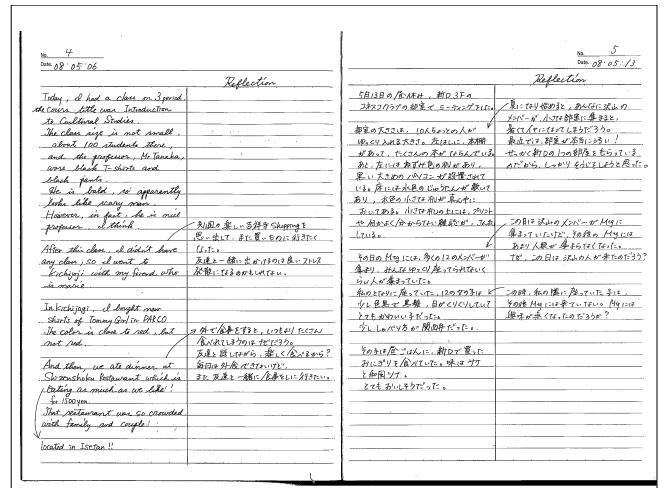 No. 4
Date 08・05・06
Reflection
Today, I had a class on 3 period.
the course tittle was Introduction
to Cultural Studies.
The class size is not small.
about 100 students there,
and the professor, Mr Tanaka,
wore black T-shorts and
black pants.
He is bald, so apparently
looks like scary man.
However, in fact, he is nice
professor, I think.
After this class, I didn't have
any class, so I went to
Kichijoji with my friend who
is
In Kichijoji, I bought new
shorts of Tommy Girl in PARCO.
The color is close to red, but
not red.
And then, we ate dinner at
restaurant which is
eating as much as we like!
for 1500 yen.
That restaurant was so crowded
with family and couple!
located in Isetan!!
先週の楽しい吉祥寺Shoppingを
思い出して、また買いものに行きたく
なった。
友達と一緒に出かけるのは良いストレス
発散になるのかもしれない。
外で食事をすると、いつもよりたくさん
食べれてしまうのはなぜだろう。
友達と話しながら、楽しく食べるから?
毎日は外食できないけど、
また友達と一緒に食事をしに行きたい。
No. 5
Date 08・05・13
Reflection
5月13日の昼休みは、新D3Fの
ユネスコクラブの部室でミーティングをした。
部室の大きさは、10人ちょっとの人が
ゆっくり入れる大きさ。右はしに、本棚
があって、たくさんの本がならんでいる。
あと、左にはあずき色の棚があり、
黒い大きめのパソコンが設置されて
いる。床には水色のじゅうたんが敷いて
あり、水色の小さな机が真ん中に
おいてある。小さな机の上には、プリント
や何かよく分からない雑誌が、
している。
その日のMtgには、多くの12のメンバーが
集まり、みんなゆっくり座ってられないく
らい人が集まっていた。
私のとなりに座っていた、12の女の子は
少し色黒で黒髪、目がくりくりしてて
とてもかわいい子だった。
少ししゃべり方が関西弁だった。
その子は昼ごはんに、新Dで買った
おにぎりを食べていた。味はサケ
と和風ツナ。
とてもおいしそうだった。
夏になり始めると、あんなに沢山の
メンバーが、小さな部室に集まると、
暑くてイヤになってしまうだろう。
せっかく新Dの1つの部屋をもらっている
のだから、しっかりそうじしようと思った。
この日は沢山のメンバーがMtgに
集まっていたけど、その後のMtgには
あまり人数が集まらなくなった。
なぜ、この日は沢山の人が来たのだろう?
この時、私の隣に座っていた子は、
その後Mtgには来ていない。Mtgには
興味が無くなったのだろうか?